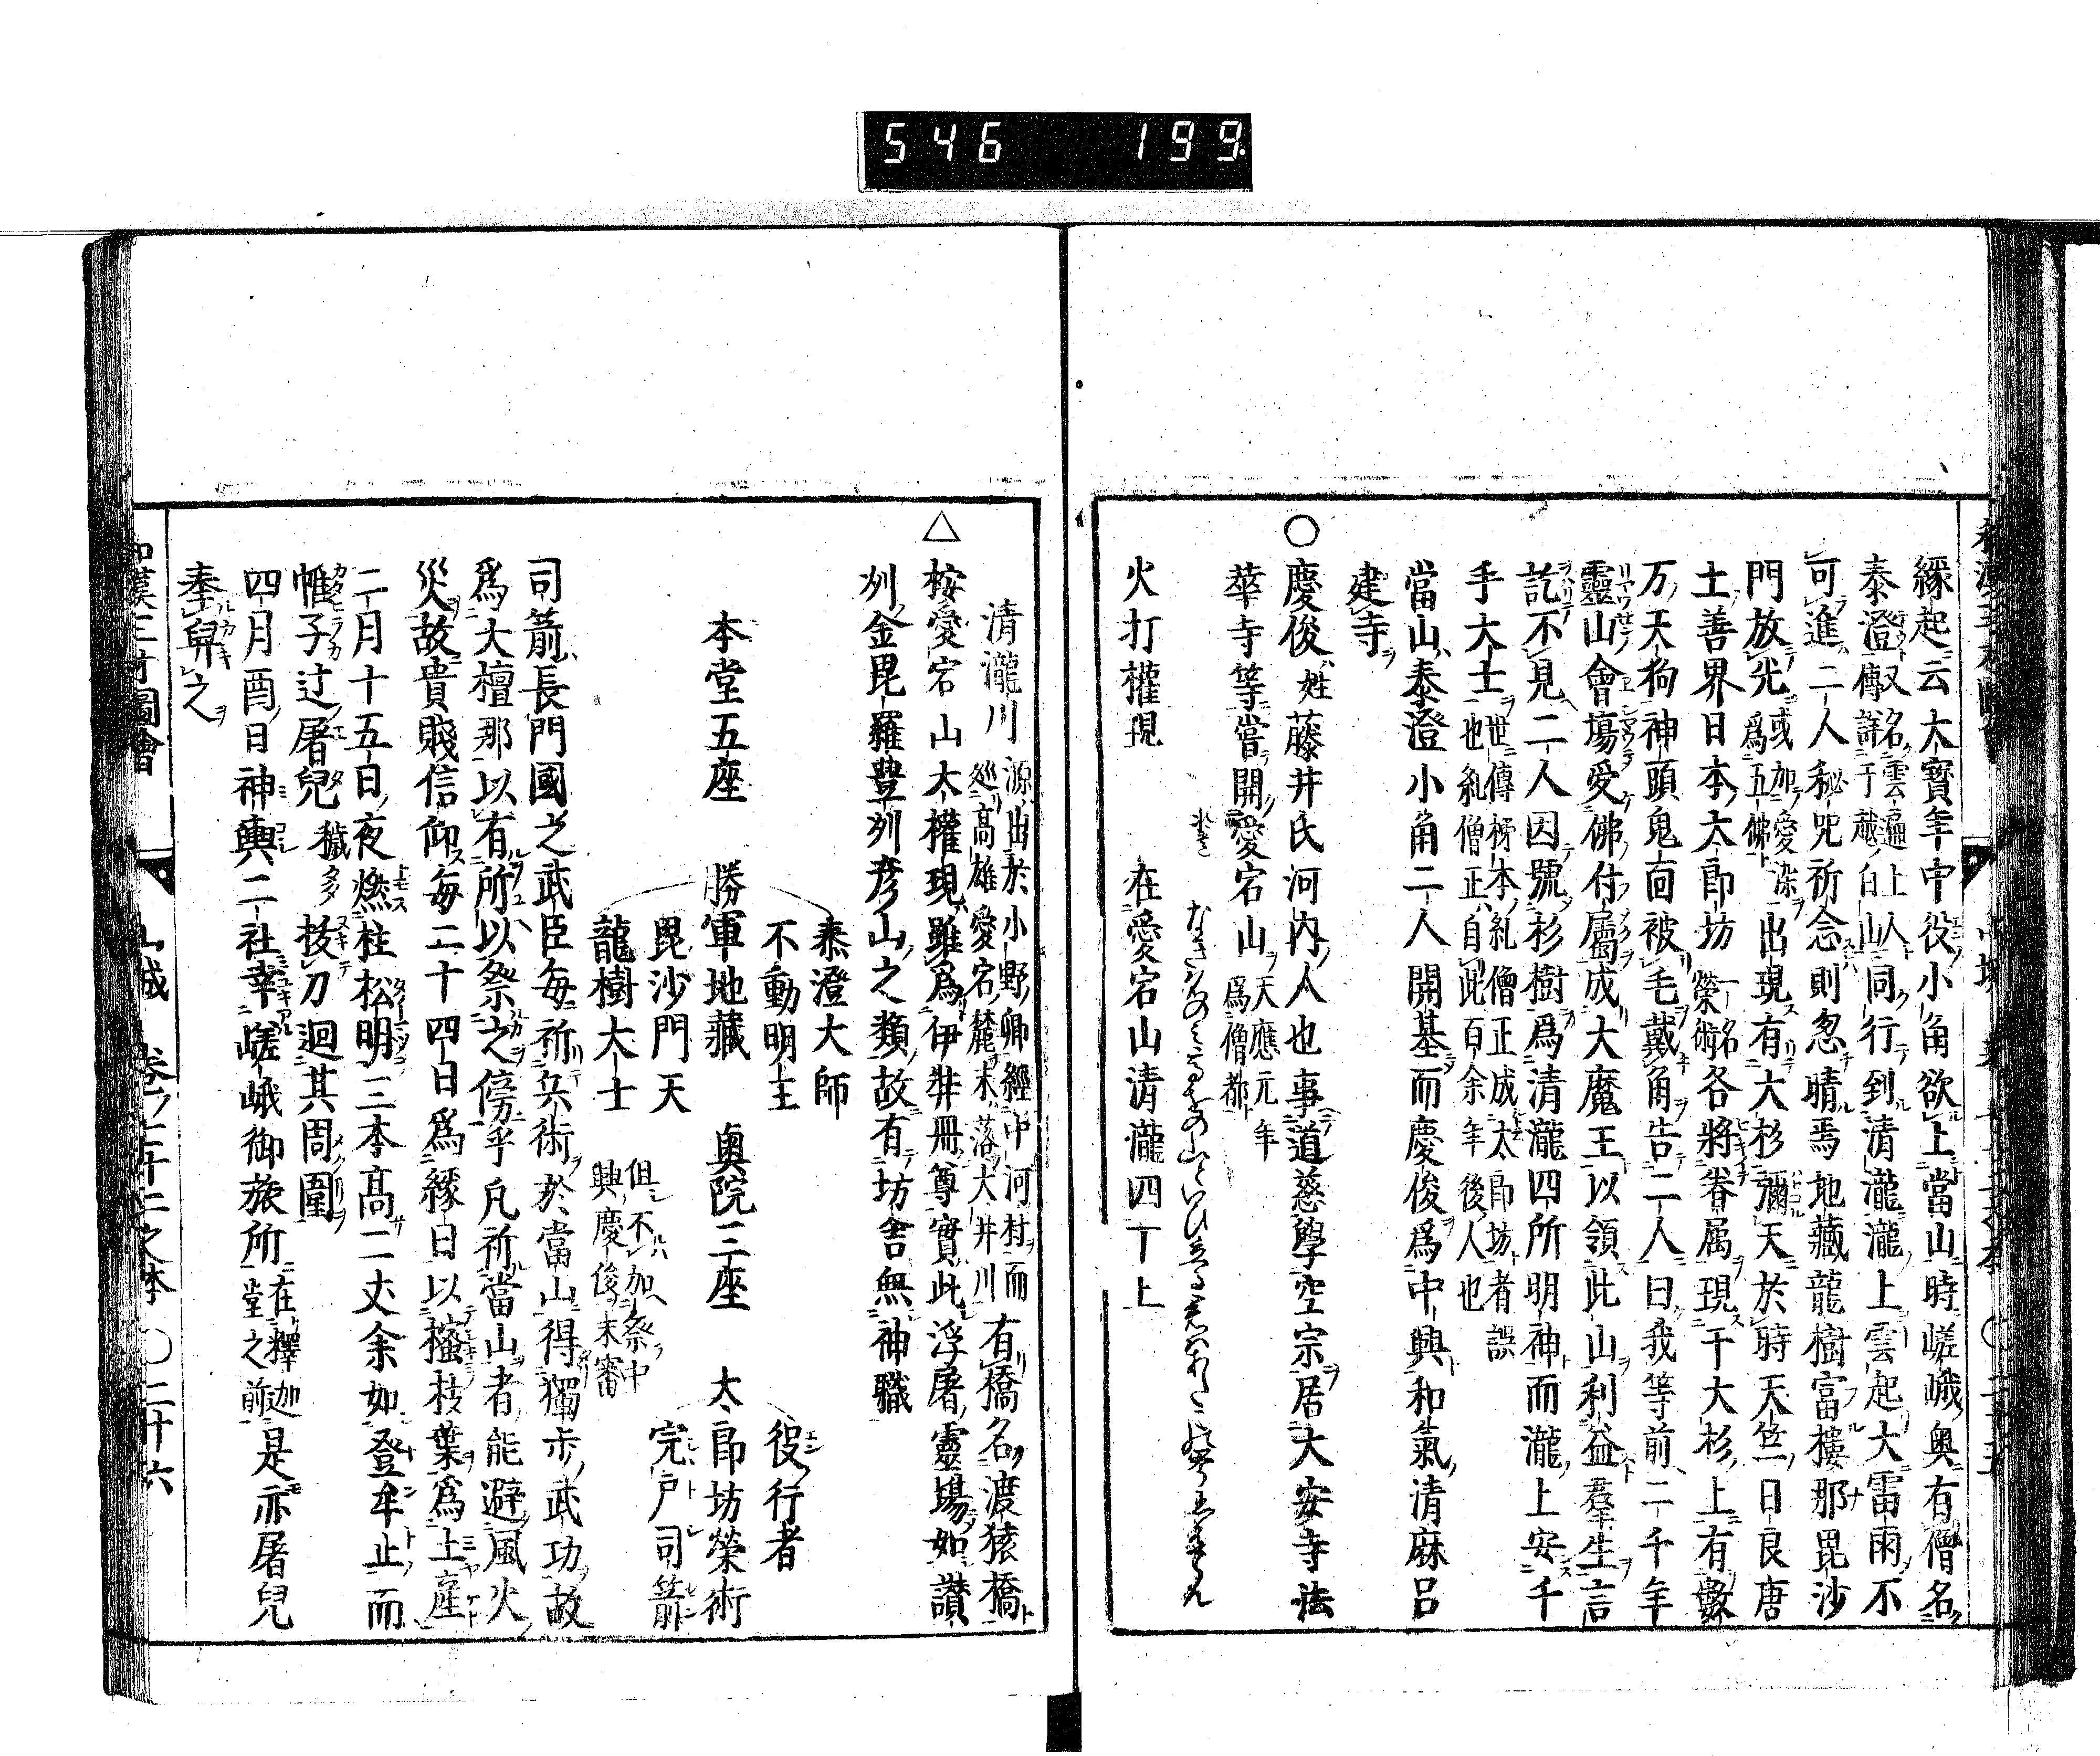 546 199
縁起云大寶年中役小角欲上當山時嵯峨奥有僧名
泰澄又名雲遍上人傳詳于越白山同行到清瀧瀧上雲起大雷雨不
可進二人秘咒祈念則忽晴焉地藏龍樹富樓那毘沙
門放光或加愛染爲五佛出現有大杉彌天於時天竺日良唐
土善界日本太郎坊一名榮術各將眷属現于大杉上有數
万天狗神頭鬼面被毛戴角告二人曰我等前二千年
靈山會塲愛佛付屬成大魔王以領此山利益羣生言
訖不見二人因號杉樹爲清瀧四所明神而瀧上安千
手大士世傳柹本紀僧正成太郎坊者誤也紀僧正自此百余年後人也
當山泰澄小角二人開基而慶俊爲中興和氣清麻呂
建寺
○慶俊姓藤井氏河内人也事道慈學空宗居大安寺法
華寺等嘗開愛宕山天應元年爲僧都
火打權現 在愛宕山清瀧四丁上
清瀧川源出於小野郷經中河村而巡高雄愛宕麓末落大井川有橋名渡猿橋
△桉愛宕山大權現雖爲伊弉冊尊實此浮屠靈場如讃
州金毘羅豊州彦山之類故有坊舎無神職
泰澄大師 役行者
不動明王
本堂五座 勝軍地藏 奥院三座 太郎坊榮術
毘沙門天 宍戸司箭
龍樹大士 但不加祭中興慶俊未審
司箭長門國之武臣毎祈兵術於當山得獨歩武功故
爲大檀那以有所以祭之傍乎凡祈當山者能避風火
災故貴賤信仰毎二十四日爲縁日以樒枝葉爲土産
二月十五日夜燃柱松明三本高二丈余如登牟止而
帷子辻屠兒穢多抜刀迴其周圍
四月酉日神輿二社幸嵯峨御旅所在釋迦堂之前是亦屠兒
奉舁之
和漢三才圖會 山城 卷ノ七十二之本 ○二十六